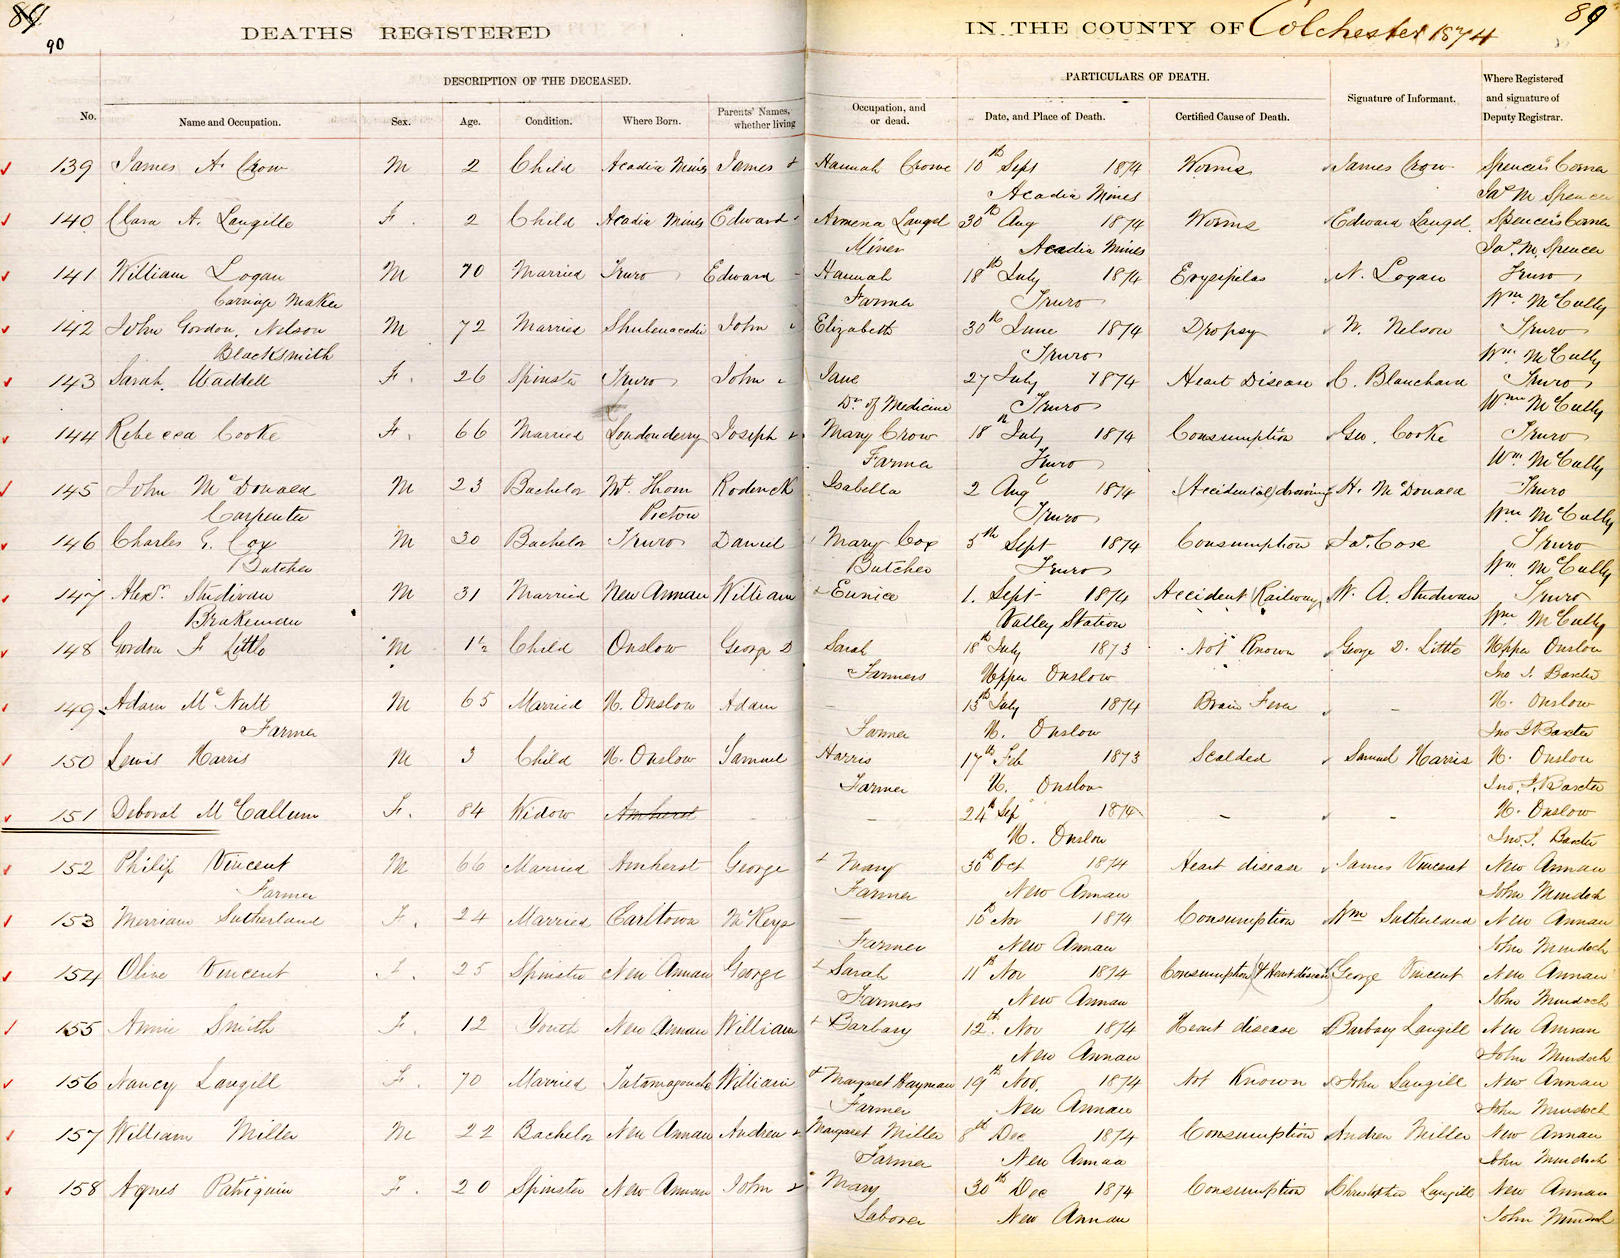 90
89
DEATHS REGISTERED IN THE COUNTY OF Colchester 1874
DESCRIPTION OF THE DECEASED. PARTICULARS OF DEATH.
No. Name and Occupation. Sex. Age. Condition. Where Born. Parents' Names, whether living Occupation, and or dead. Date, and Place of Death. Certified Cause of Death. Signature of Informant. Where Registered and signature of Deputy Registrar.
139 James A. Crow M 2 Child Acadia Mines James & Hannah Crowe 10th Sept 1874 Worms James Crow Spencer's Corner
Acadia Mines Jas M Spencer
140 Clara A. Langille F. 2 Child Acadia Mines Edward & Armena Langel 30th Aug 1874 Worms Edward Langel Spencer's Corner
Miner Acadia Mines Jas. M. Spencer
141 William Logan M 70 Married Truro Edward Hannah 18th July 1874 Erysipelas N. Logan Truro
Carriage Maker Farmer Truro Wm McCully
142 John Gordon Nelson M 72 Married Shubenacadie John & Elizabeth 30th June 1874 Dropsy W. Nelson Truro
Blacksmith Truro Wm McCully
143 Sarah Waddell F. 26 Spinster Truro John & Jane 27 July 1874 Heart Disease C. Blanchard Truro
Dr. of Medicine Truro Wm McCully
144 Rebecca Cooke F. 66 Married Londonderry Joseph & Mary Crow 18th July 1874 Consumption Geo. Cooke Truro
Farmer Truro Wm McCully
145 John McDonald M 23 Bachelor Mt. Thom Roderick Isabella 2 Aug 1874 (Accidental) drowning H. McDonald Truro
Carpenter Pictou Truro Wm McCully
146 Charles G. Cox M 30 Bachelor Truro Daniel Mary Cox 5th Sept 1874 Consumption Jas. Coxe Truro
Butcher Butcher Truro Wm McCully
147 Alexr. Studivan M 31 Married New Annan William & Eunice 1. Sept 1874 Accident (Railway) W. A. Studivan Truro
Brakeman Valley Station Wm McCully
148 Gordon F Little M 1½ Child Onslow George D Sarah 18th July 1873 Not Known George D. Little Upper Onslow
Farmers Upper Onslow Jno I. Baxter
149 Adam McNutt M 65 Married U. Onslow Adam – 15th July 1874 Brain Fever – U. Onslow
Farmer Farmer U. Onslow Jno I Baxter
150 Lewis Harris M 3 Child U. Onslow Samuel Harris 17th Feb 1873 Scalded Samuel Harris U. Onslow
Farmer U. Onslow Jno. I. Baxter
151 Deborah McCallum F. 84 Widow Amherst – – 24th Sep 1874 – – U. Onslow
U. Onslow Jno. I. Baxter
152 Philip Vincent M 66 Married Amherst George & Mary 30th Oct 1874 Heart disease James Vincent New Annan
Farmer Farmer New Annan John Murdoch
153 Merriam Sutherland F. 24 Married Earltown McKeys – 16th Nov 1874 Consumption Wm Sutherland New Annan
Farmer New Annan John Murdoch
154 Olive Vincent F. 25 Spinster New Annan George & Sarah 11th Nov 1874 Consumption (& Heart disease) George Vincent New Annan
Farmers New Annan John Murdoch
155 Annie Smith F. 12 Youth New Annan William & Barbary 12th. Nov 1874 Heart disease Barbary Langill New Annan
New Annan John Murdoch
156 Nancy Langill F. 70 Married Tatamagouche William & Margaret Hayman 19th Nov. 1874 Not Known John Langill New Annan
Farmer New Annan John Murdoch
157 William Miller M 22 Bachelor New Annan Andrew & Margaret Miller 8th Dec 1874 Consumption Andrew Miller New Annan
Farmer New Annan John Murdoch
158 Agnes Patriquin F. 20 Spinster New Annan John & Mary 30th Dec 1874 Consumption Christopher Langill New Annan
Laborer New Annan John Murdoch